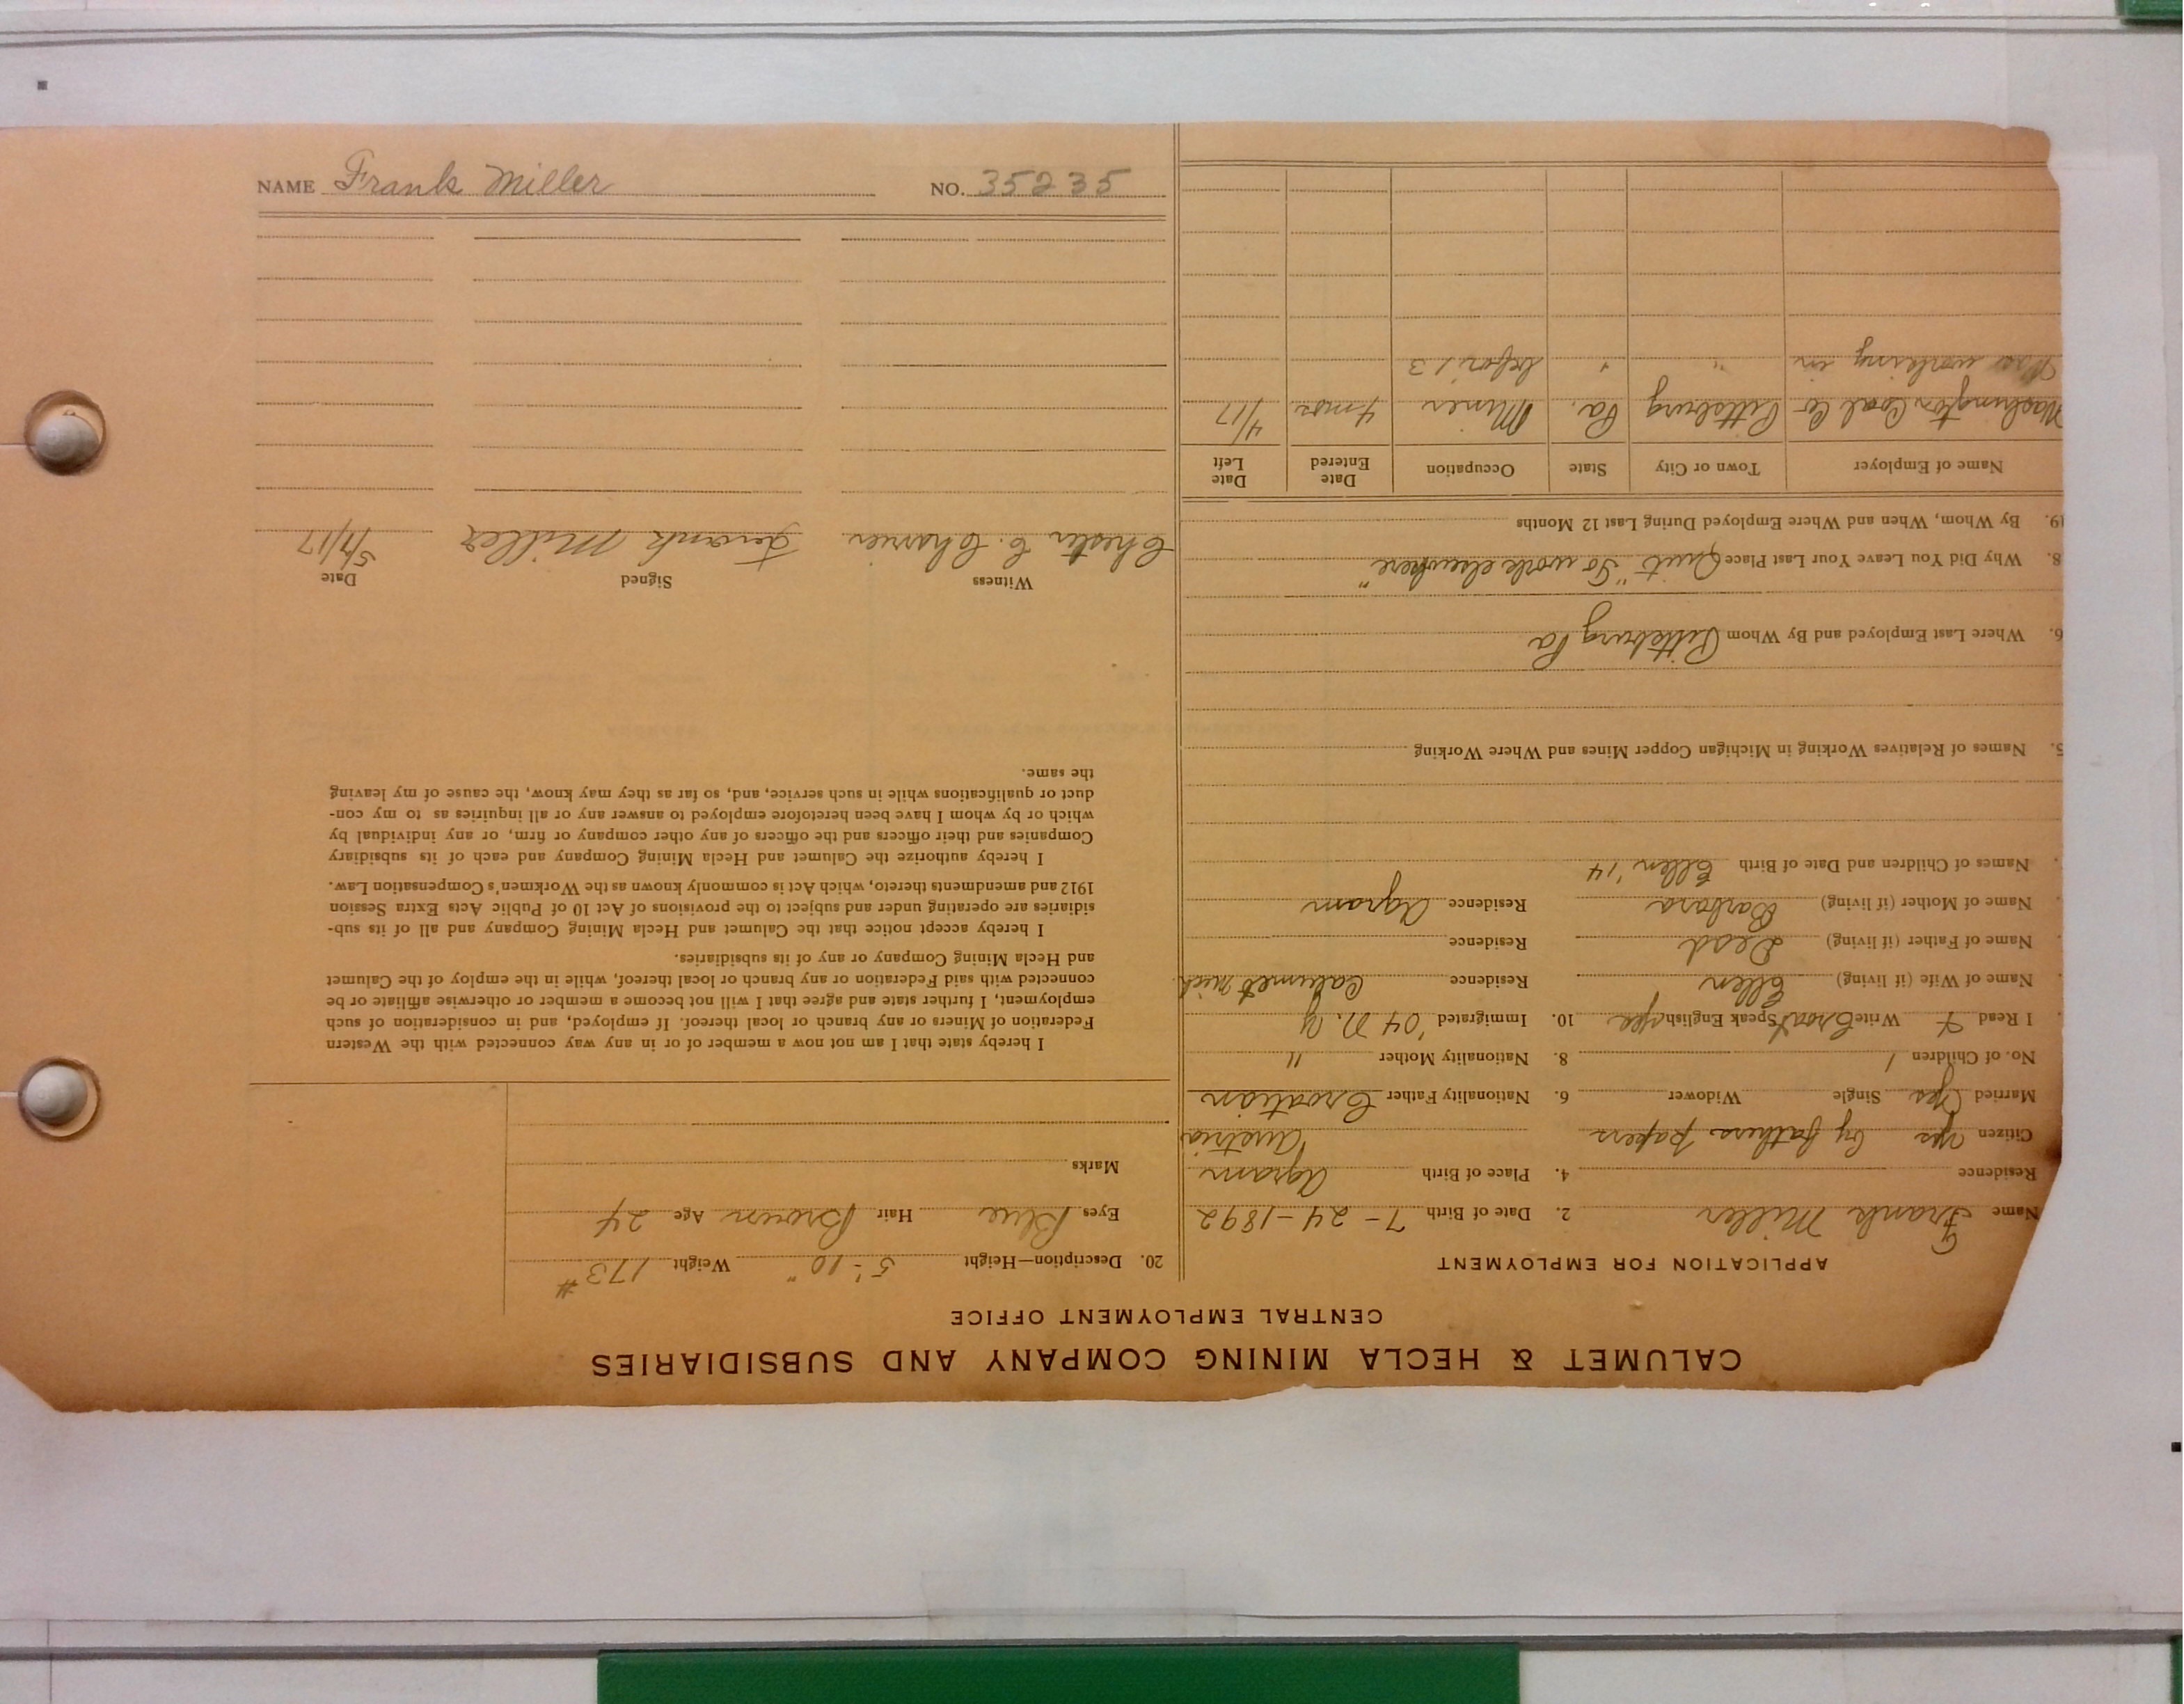 CALUMET & HECLA MINING COMPANY AND SUBSIDIARIES
CENTRAL EMPLOYMENT OFFICE
APPLICATION FOR EMPLOYMENT
Name Frank Miller 2. Date of Birth 7-24-1892
Residence 4. Place of Birth Agram
Citizen yes by fathers papers Austria
Married Yes Single Widower 6. Nationality Father Croatian
No. of Children 1 8. Nationality Mother "
I Read + Write Croat Speak English yes 10. Immigrated '04 N.Y
Name of Wife (if living) Ellen Residence Calumet Mich.
Name of Father (if living) Dead Residence
Name of Mother (if living) Barbara Residence Agram
Names of Children and Date of Birth Ellen '14
5. Names of Relatives Working in Michigan Copper Mines and Where Working
6. Where Last Employed and By Whom Pittsburg Pa
8. Why Did You Leave Your Last Place Quit "To work elsewhere"
19. By Whom, When and Where Employed During Last 12 Months
Name of Employer Town or City State Occupation Date Entered Date Left
Washington Coal Co Pittsburg Pa. Miner 4 mos 4/17
Was working in " " before 13
20. Description—Height 5'-10" Weight 173#
Eyes Blue Hair Brown Age 24
Marks
I hereby state that I am not now a member of or in any way connected with the Western
Federation of Miners or any branch or local thereof. If employed, and in consideration of such
employment, I further state and agree that I will not become a member or otherwise affiliate or be
connected with said Federation or any branch or local thereof, while in the employ of the Calumet
and Hecla Mining Company or any of its subsidiaries.
I hereby accept notice that the Calumet and Hecla Mining Company and all of its sub-
sidiaries are operating under and subject to the provisions of Act 10 of Public Acts Extra Session
1912 and amendments thereto, which Act is commonly known as the Workmen's Compensation Law.
I hereby authorize the Calumet and Hecla Mining Company and each of its subsidiary
Companies and their officers and the officers of any other company or firm, or any individual by
which or by whom I have been heretofore employed to answer any or all inquiries as to my con-
duct or qualifications while in such service, and, so far as they may know, the cause of my leaving
the same.
Witness Signed Date
Chester C. Charrier Frank Miller 5/7/17
NAME Frank Miller NO. 35235